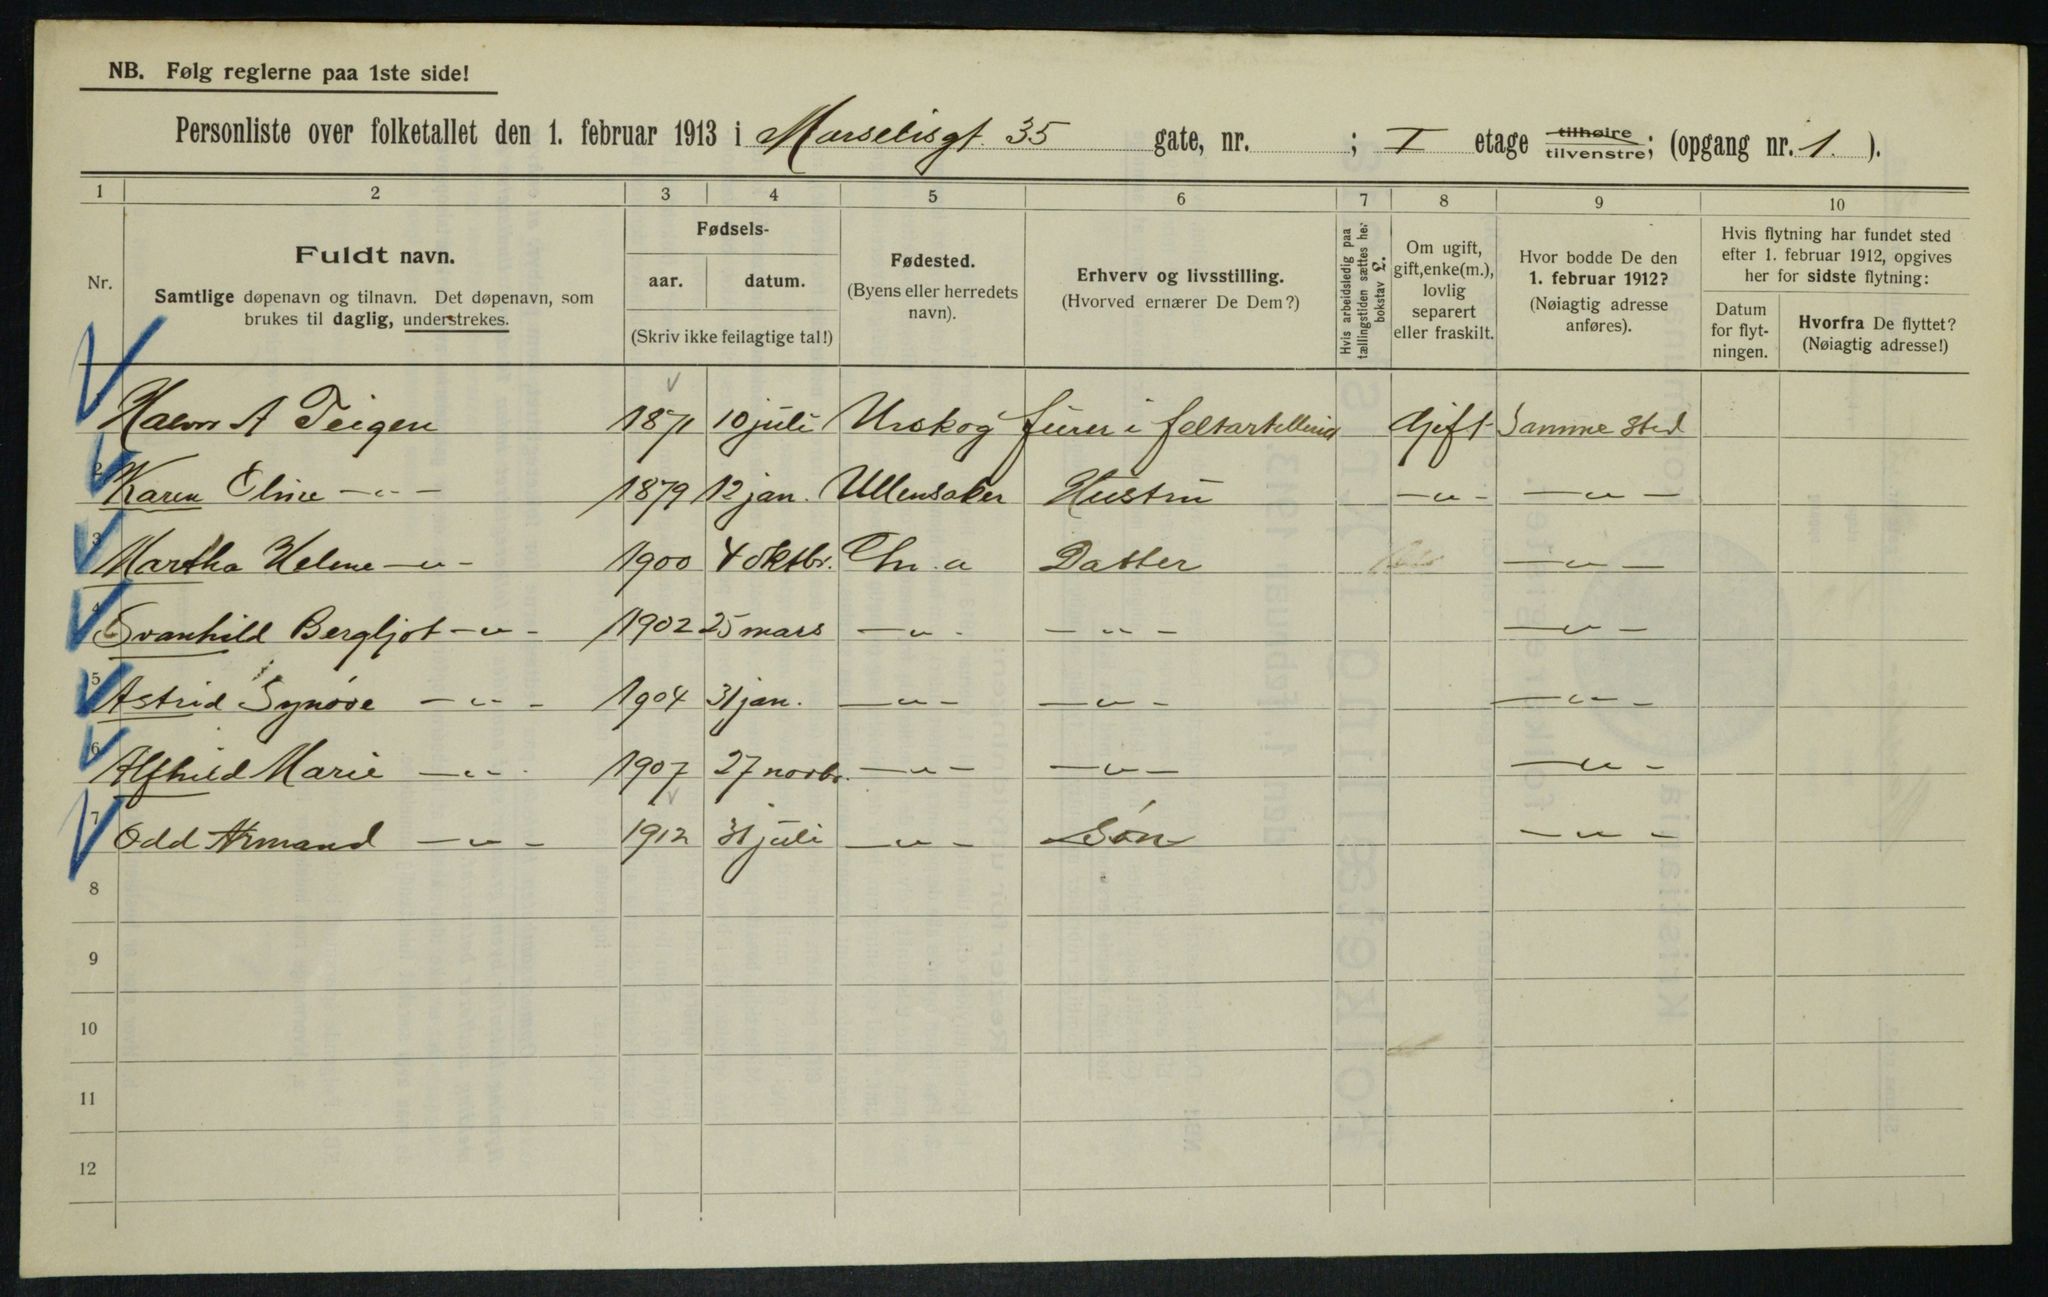 NB. Følg reglerne paa 1ste side!
Personliste over folketallet den 1. februar 1913 i Marselisgt. 35 gate, nr. ; I etage tilhøire tilvenstre; (opgang nr. 1. ).
1 2 3 4 5 6 7 8 9 10
Nr.
Fuldt navn.
Samtlige døpenavn og tilnavn. Det døpenavn, som
brukes til daglig, understrekes.
Fødsels-
aar. datum.
(Skriv ikke feilagtige tal!)
Fødested.
(Byens eller herredets
navn).
Erhverv og livsstilling.
(Hvorved ernærer De Dem?)
Hvis arbeidsledig paa
tællingstiden sættes her
bokstav L.
Om ugift,
gift, enke(m.),
lovlig
separert
eller fraskilt.
Hvor bodde De den
1. februar 1912?
(Nøiagtig adresse
anføres).
Hvis flytning har fundet sted
efter 1. februar 1912, opgives
her for sidste flytning:
Datum
for flyt-
ningen.
Hvorfra De flyttet?
(Nøiagtig adresse!)
Halvor A Teigen 1871 10 juli Urskog furer i feltartelleriet Gift Samme sted
2 Karen Eline —"— 1879 12 jan. Ullensaker Hustru —"— —"—
3 Martha Helene —"— 1900 4 oktbr. Chr.a Datter —"—
4 Svanhild Bergljot —"— 1902 25 mars —"— —"— —"—
5 Astrid Synøve —"— 1904 31 jan. —"— —"— —"—
6 Alfhild Marie —"— 1907 27 novbr. —"— —"— —"—
7 Odd Armand —"— 1912 31 juli —"— Søn —"—
8
9
10
11
12